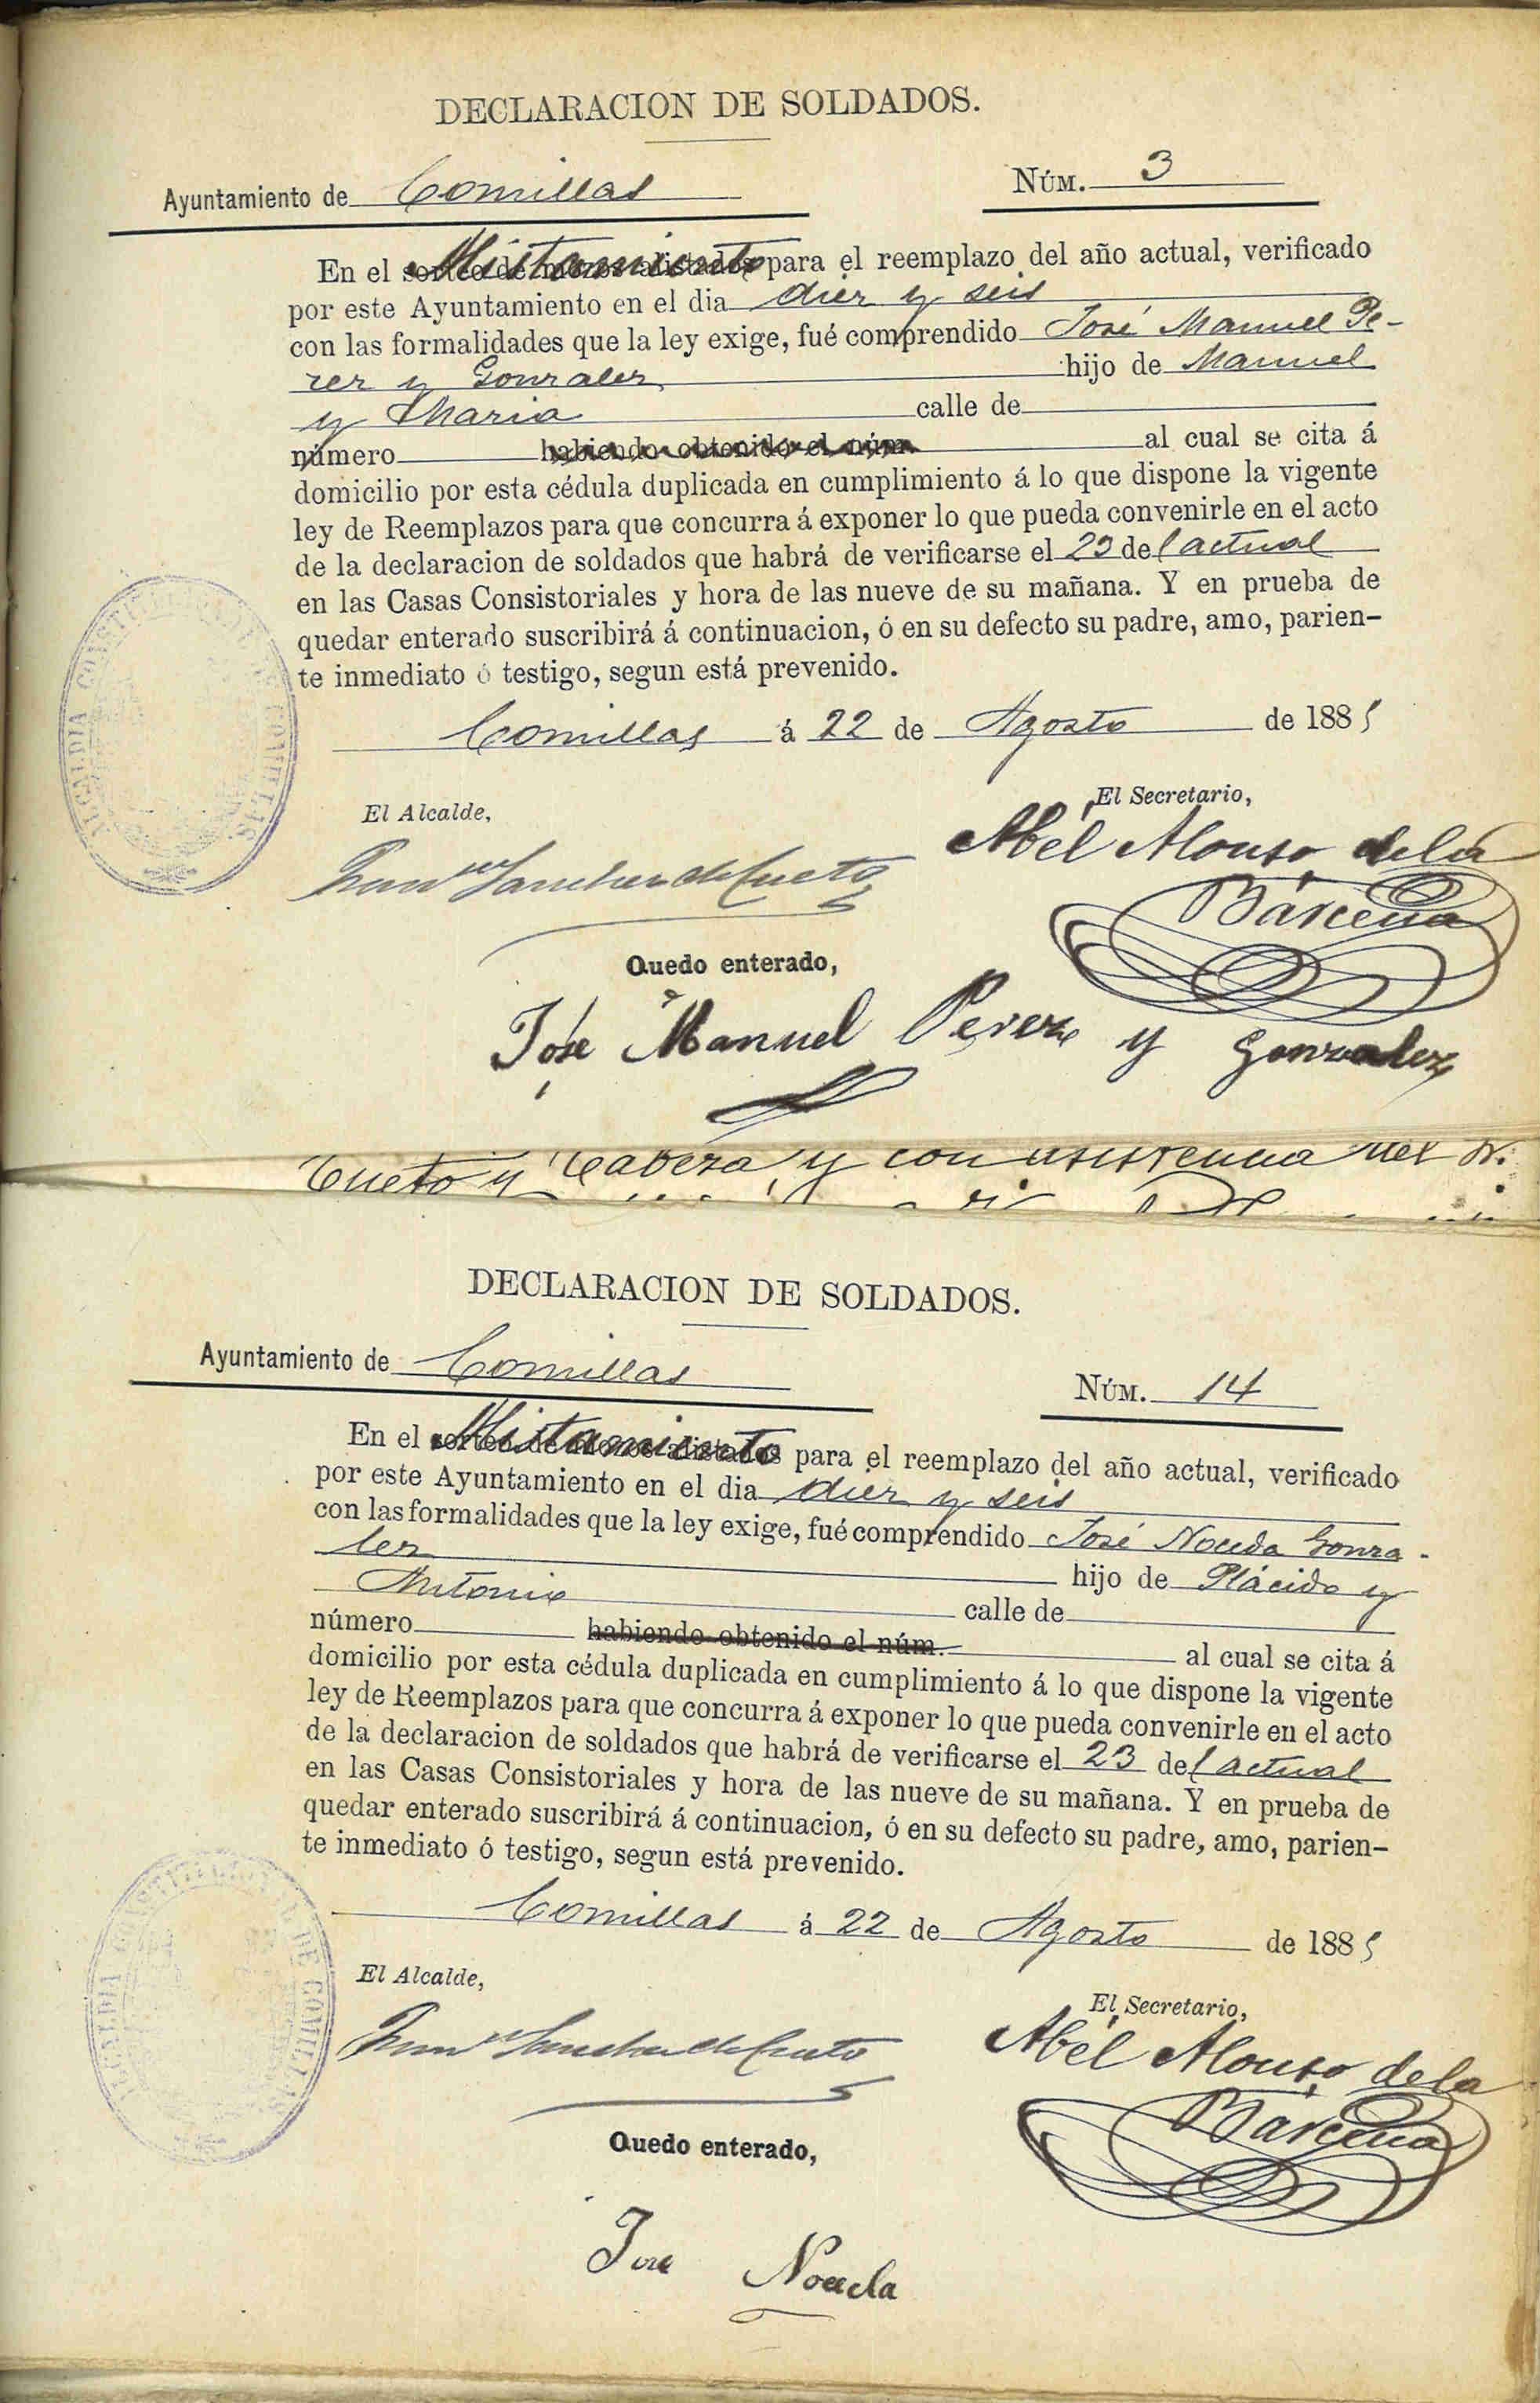 DECLARACION DE SOLDADOS.
Ayuntamiento de Comillas
NÚM. 3
En el sorteo de mozos alistados Alistamiento para el reemplazo del año actual, verificado
por este Ayuntamiento en el dia diez y seis
con las formalidades que la ley exige, fué comprendido José Manuel Pe-
rez y Gonzalez hijo de Manuel
y Maria calle de
número habiendo obtenido el núm al cual se cita á
domicilio por esta cédula duplicada en cumplimiento á lo que dispone la vigente
ley de Reemplazos para que concurra á exponer lo que pueda convenirle en el acto
de la declaracion de soldados que habrá de verificarse el 23 del actual
en las Casas Consistoriales y hora de las nueve de su mañana. Y en prueba de
quedar enterado suscribirá á continuacion, ó en su defecto su padre, amo, parien-
te inmediato ó testigo, segun está prevenido.
Comillas á 22 de Agosto de 1885
El Alcalde,
El Secretario,
Abél Alonso de la
Sanchez de Cueto
Bárcena
Quedo enterado,
José Manuel Perez y Gonzalez
Cueto y Cabeza y con asistencia del Sr.
DECLARACION DE SOLDADOS.
Ayuntamiento de Comillas
NÚM. 14
En el sorteo de mozos alistados Alistamiento para el reemplazo del año actual, verificado
por este Ayuntamiento en el dia diez y seis
con las formalidades que la ley exige, fué comprendido José Noceda Gonza-
lez hijo de Plácido y
Antonia calle de
número habiendo obtenido el núm. al cual se cita á
domicilio por esta cédula duplicada en cumplimiento á lo que dispone la vigente
ley de Reemplazos para que concurra á exponer lo que pueda convenirle en el acto
de la declaracion de soldados que habrá de verificarse el 23 del actual
en las Casas Consistoriales y hora de las nueve de su mañana. Y en prueba de
quedar enterado suscribirá á continuacion, ó en su defecto su padre, amo, parien-
te inmediato ó testigo, segun está prevenido.
Comillas á 22 de Agosto de 1885
El Alcalde,
El Secretario,
Abél Alonso de la
Sanchez de Cueto
Bárcena
Quedo enterado,
Jose Noceda
ALCALDIA CONSTITUCIONAL DE COMILLAS
ALCALDIA CONSTITUCIONAL DE COMILLAS